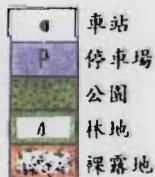 車站
P 停車場
公園
林地
裸露地